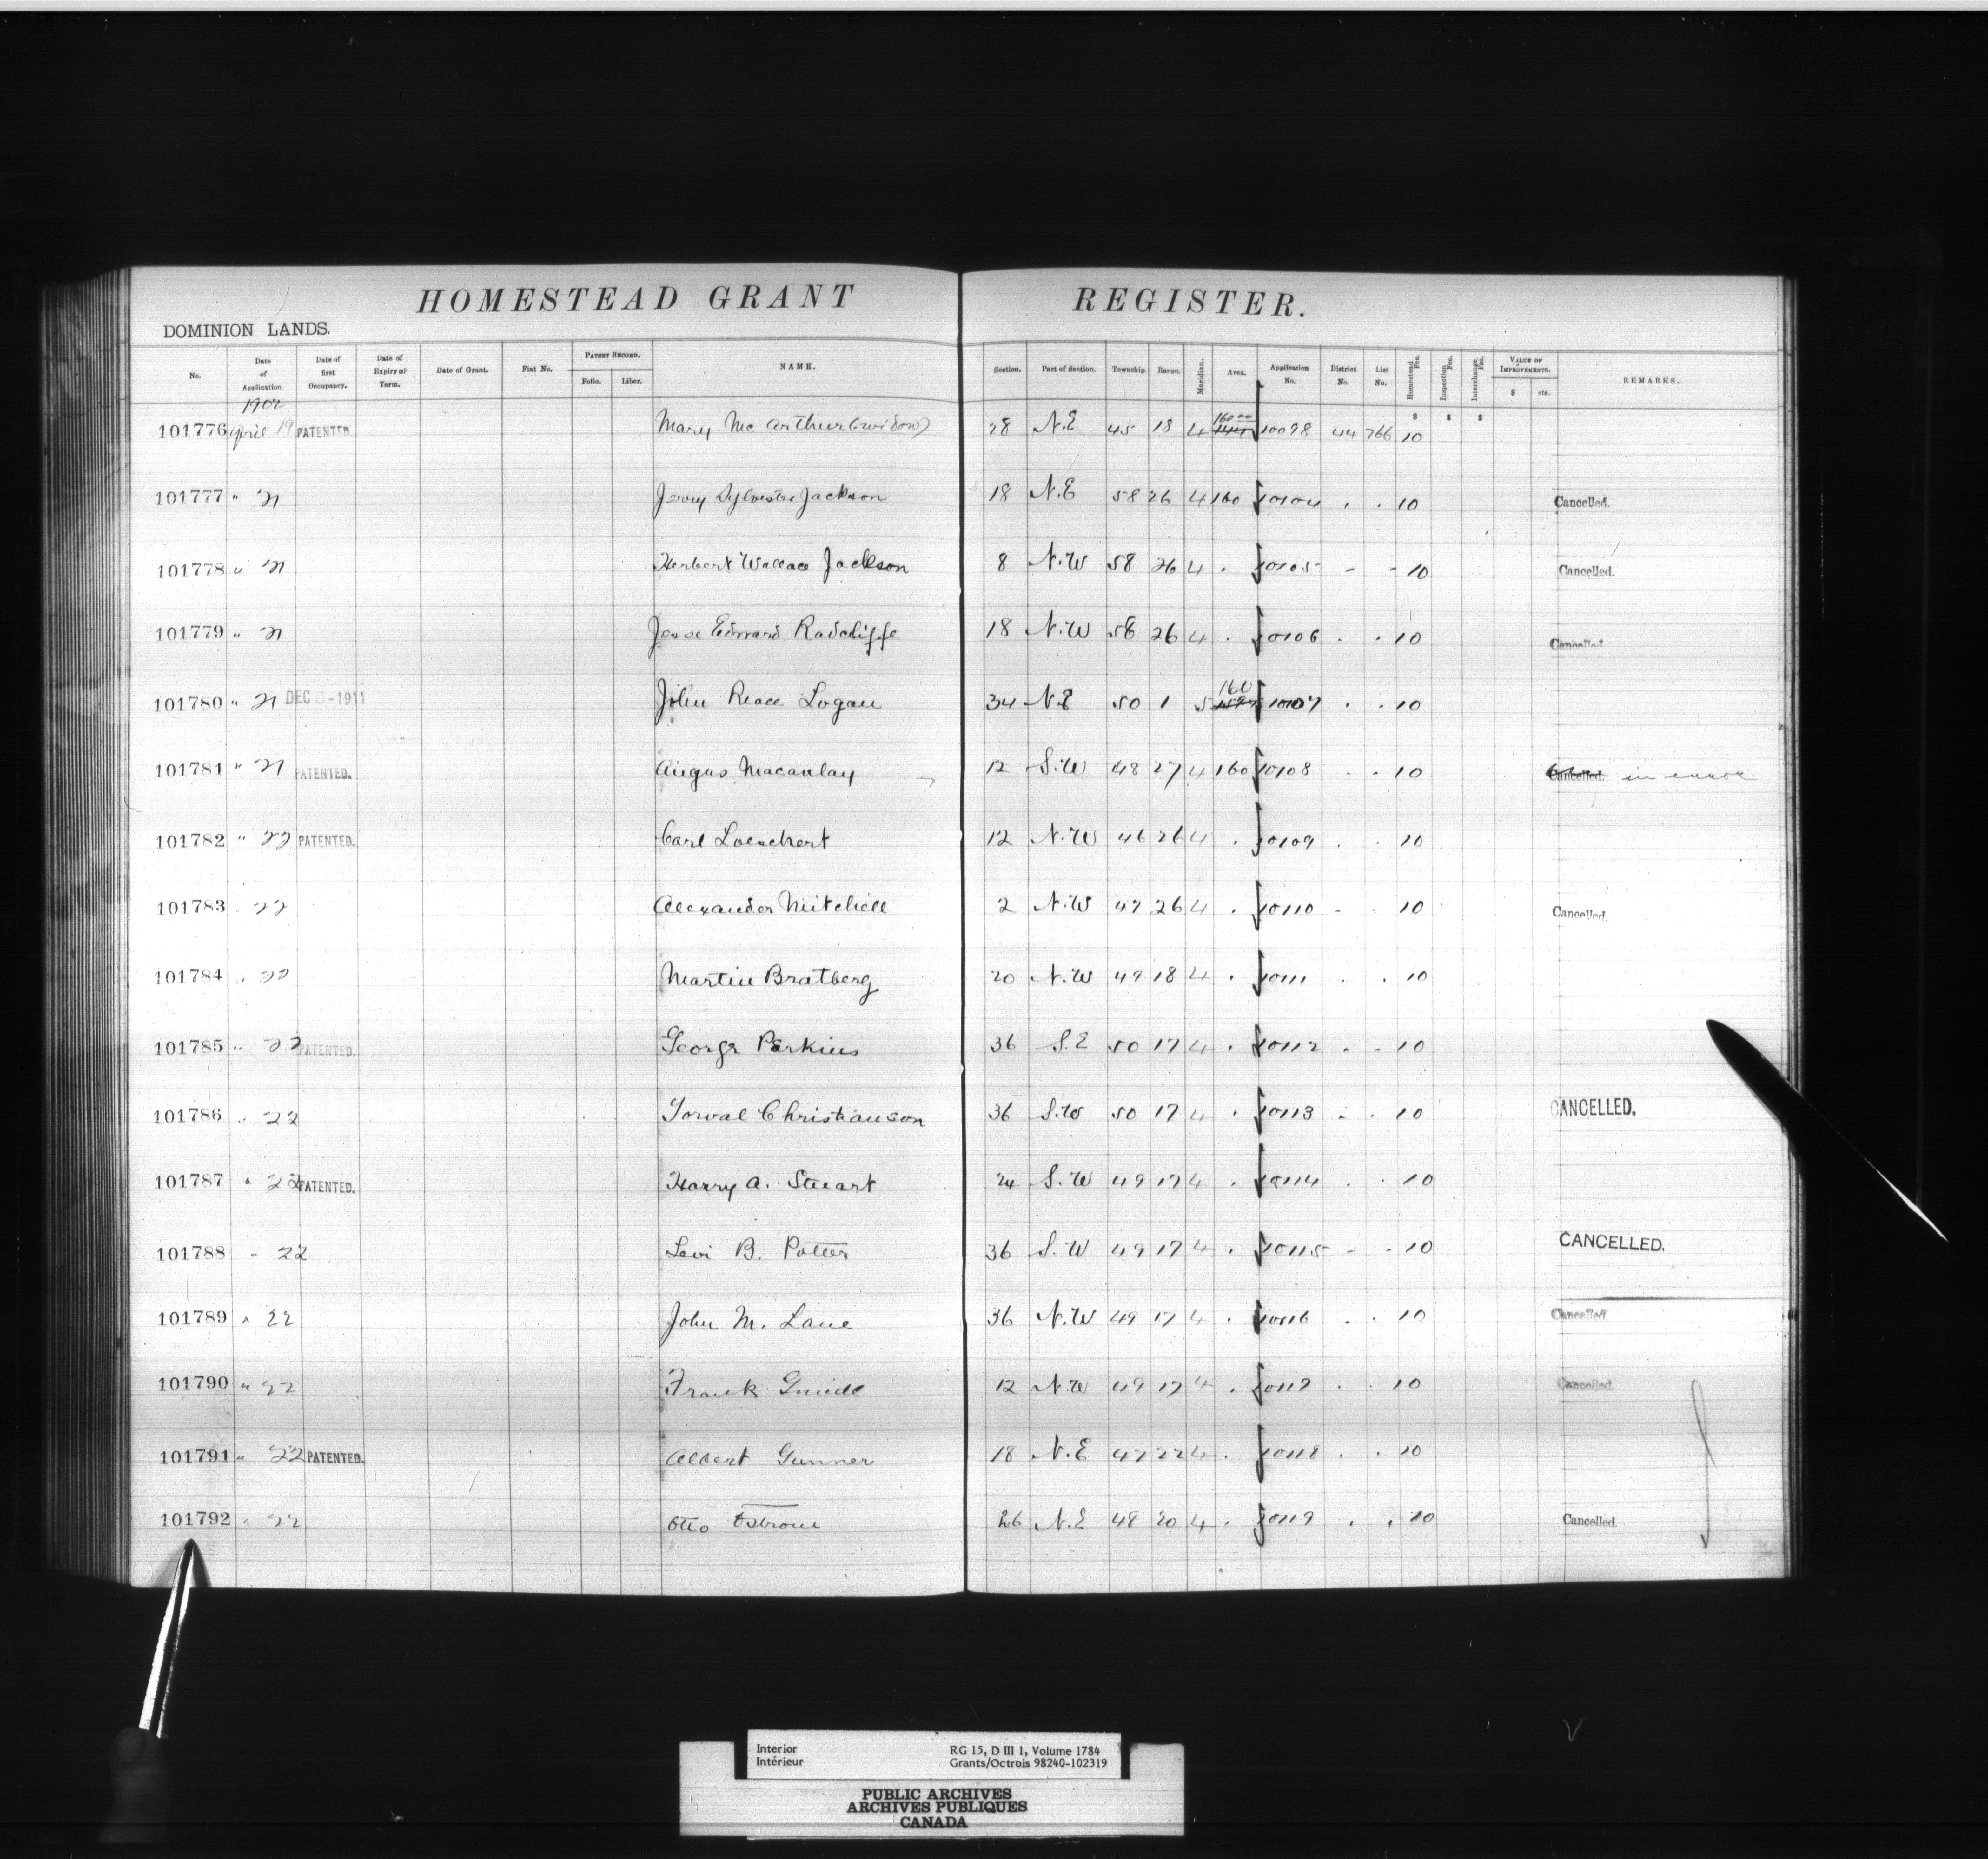 HOMESTEAD GRANT REGISTER.
DOMINION LANDS.
No. Date of Application Date of first Occupancy. Date of Expiry of Term. Date of Grant. Fiat No. PATENT RECORD. Folio. Liber. NAME. Section. Part of Section. Township. Range. Meridian. Area. Application No. District No. List No. Homestead Fee. Inspection Fee. Interchange Fee. VALUE OF IMPROVEMENTS. $ cts. REMARKS.
1902 $ $ $
101776 April 19 PATENTED. Mary McArthur (widow) 28 N.E 45 18 4 160 00 144 10098 44 766 10
101777 " 21 Jerry Sylvester Jackson 18 N.E 58 26 4 160 10104 . . 10 Cancelled.
101778 " 21 Herbert Wallace Jackson 8 N.W 58 26 4 . 10105 - - 10 Cancelled.
101779 " 21 Jesse Edward Radcliffe 18 N.W 58 26 4 . 10106 . . 10 Cancelled
101780 " 21 DEC -1911 John Reace Logan 34 N.E 50 1 5 160 10107 . . 10
101781 " 21 PATENTED. Angus Macaulay 12 S.W 48 27 4 160 10108 . . 10 Cancelled. in error
101782 " 22 PATENTED. Carl Loeschert 12 N.W 46 26 4 . 10109 . . 10
101783 . 22 Alexander Mitchell 2 N.W 47 26 4 . 10110 . . 10 Cancelled.
101784 . 22 Martin Bratberg 20 N.W 49 18 4 . 10111 . . 10
101785 " 22 PATENTED. George Perkins 36 S.E 50 17 4 . 10112 . . 10
101786 . 22 Torval Christianson 36 S.W 50 17 4 . 10113 . . 10 CANCELLED.
101787 " 22 PATENTED. Harry A. Stuart 24 S.W 49 17 4 . 10114 . . 10
101788 " 22 Levi B. Potter 36 S.W 49 17 4 . 10115 - . 10 CANCELLED.
101789 " 22 John M. Lane 36 N.W 49 17 4 . 10116 . . 10 Cancelled
101790 " 22 Frank 12 N.W 49 17 4 . 10117 . . 10 Cancelled.
101791 " 22 PATENTED. Albert Gunner 18 N.E 47 22 4 . 10118 . . 10
101792 " 22 Otto Ostrom 26 N.E 48 20 4 . 10119 . . 10 Cancelled
Interior RG 15, D III 1, Volume 1784
Intérieur Grants/Octrois 98240-102319
PUBLIC ARCHIVES
ARCHIVES PUBLIQUES
CANADA